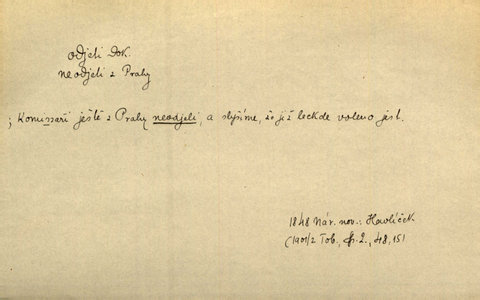 odjeti Dok.
neodjeli z Prahy
; Komissaři ještě z Prahy neodjeli, a slyšíme, že již leckde voleno jest.
1848 Nár. nov.: Havlíček
(1901/2 Tob., 2., 48, 15)